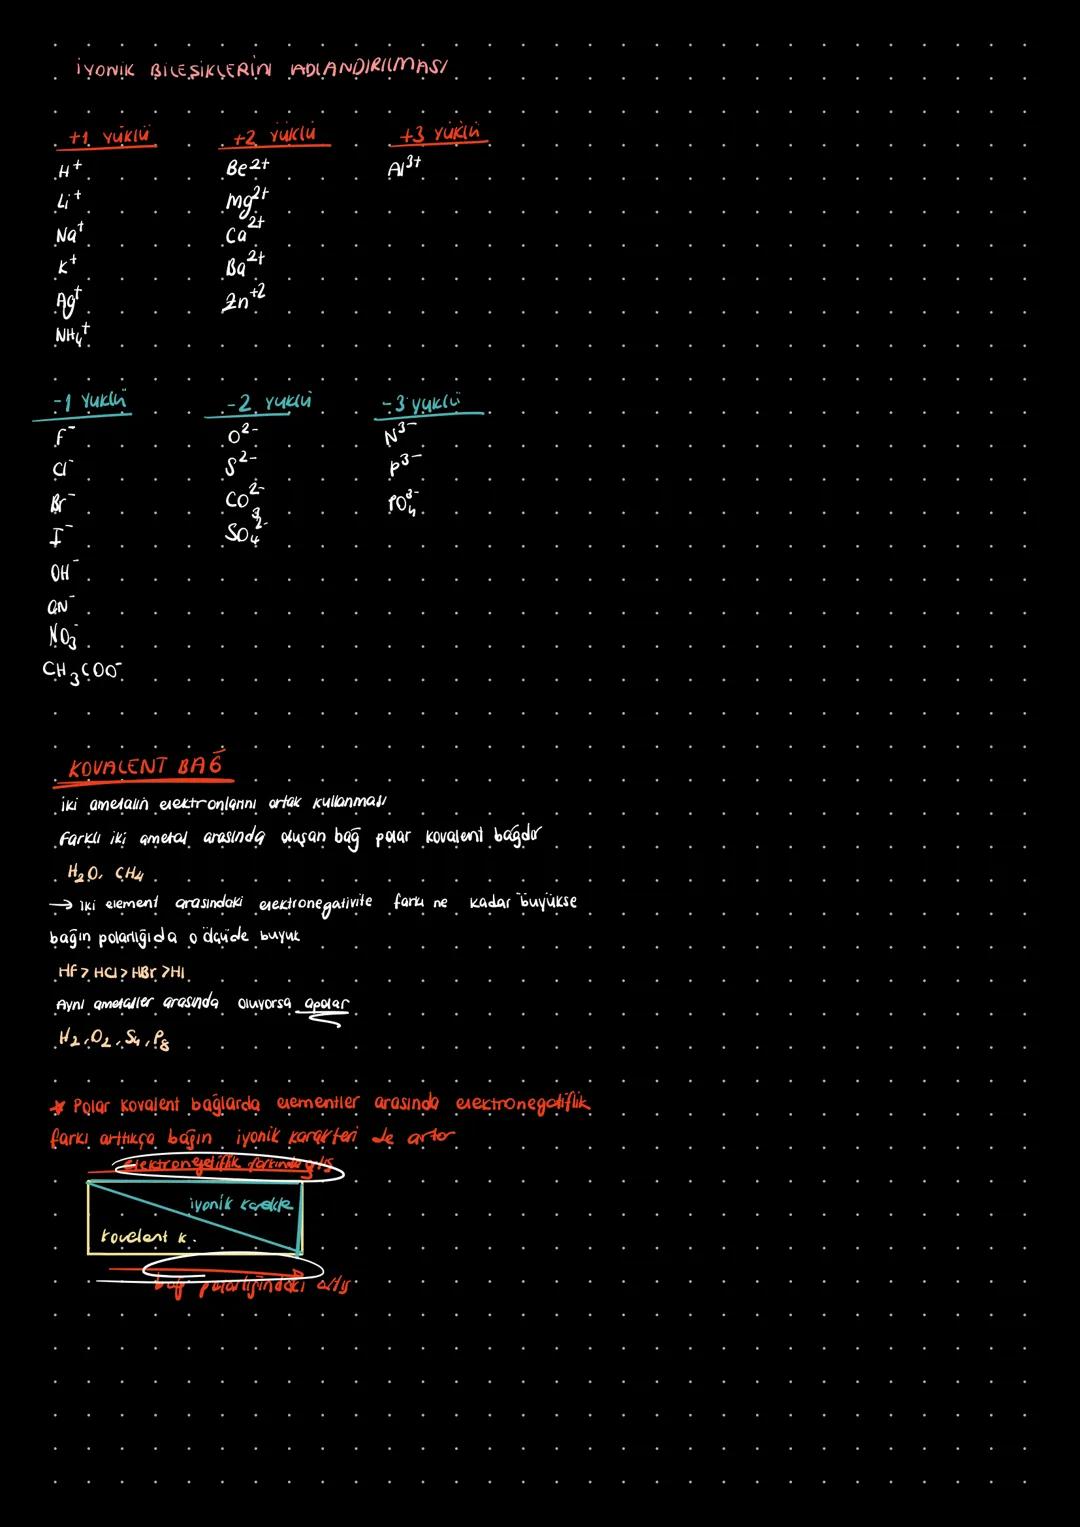 İYONİK BİLEŞİKLERİN ADLANDIRILMASI
+1 yüklü
H+
Li+
Na+
K+
Ag+
NH4+
+2 yüklü
Be2+
Mg2+
Ca2+
Ba2+
Zn+2
+3 yüklü
Al3+
-1 yüklü
F-
Cl-
Br-
I-
OH-
CN-
NO3-
CH3COO-
-2 yüklü
O2-
S2-
CO32-
SO42-
-3 yüklü
N3-
P3-
PO43-
KOVALENT BAĞ
iki ametalin elektronlarını ortak kullanması
Farklı iki ametal arasında oluşan bağ polar kovalent bağdır
H2O, CH4
→ iki element arasındaki elektronegativite farkı ne kadar büyükse
bağın polarlığıda o ölçüde büyük
HF > HCl > HBr > HI
Aynı ametaller arasında oluyorsa apolar
H2, O2, S4, P8
* Polar kovalent bağlarda elementler arasında elektronegatiflik
farkı arttıkça bağın iyonik karakteri de artar
elektronegatiflik farkında artış
iyonik karakte
Kovalent k.
bağ polarlığındaki artış